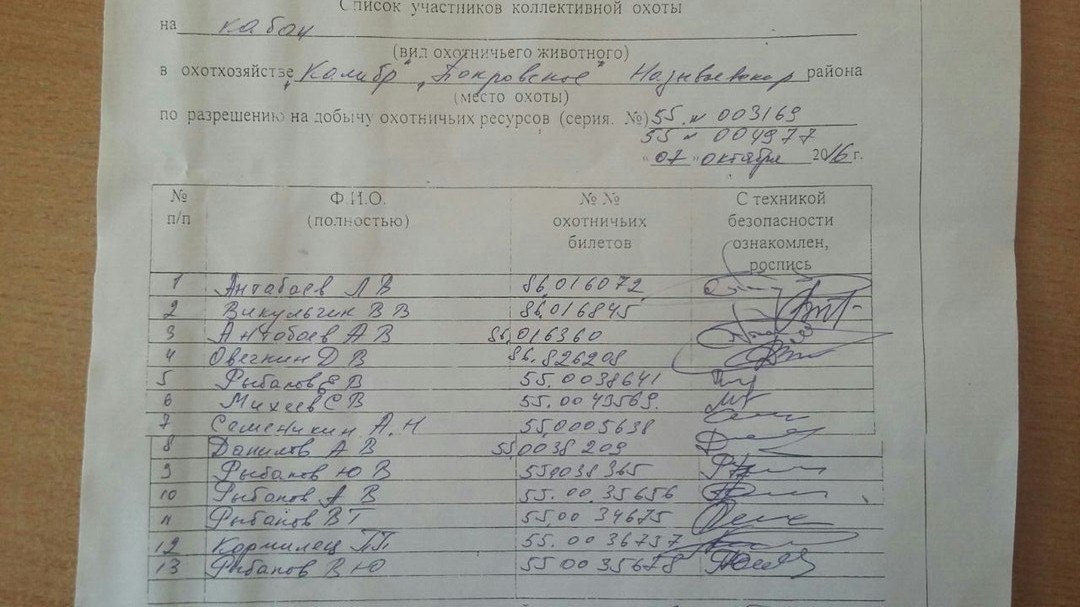 Список участников коллективной охоты
на кабан
(вид охотничьего животного)
в охотхозяйстве „Калибр" „Покровское" Называевском района
(место охоты)
по разрешению на добычу охотничьих ресурсов (серия. №) 55 № 003169
55 № 004977
"07" октября 2016 г.
№ п/п Ф.И.О. (полностью) № № охотничьих билетов С техникой безопасности ознакомлен, роспись
1 Антабаев Л В 86,016072
2 Викульчик В В 86,016845
3 Антабаев А В 86,016360
4 Овечкин Д В 86,826208
5 Рыбаков Е В 55.0038641
6 Михеев С В 55.0049569.
7 Саменикин А.Н 55,0005638
8 Данилов А В 55,0038 209
9 Рыбаков Ю В 55,0038365
10 Рыбаков А В 55.00.35656
11 Рыбаков В Т 55,00 34675
12 Кормилец П П 55.00 36737
13 Рыбаков В Ю 55 00 35678